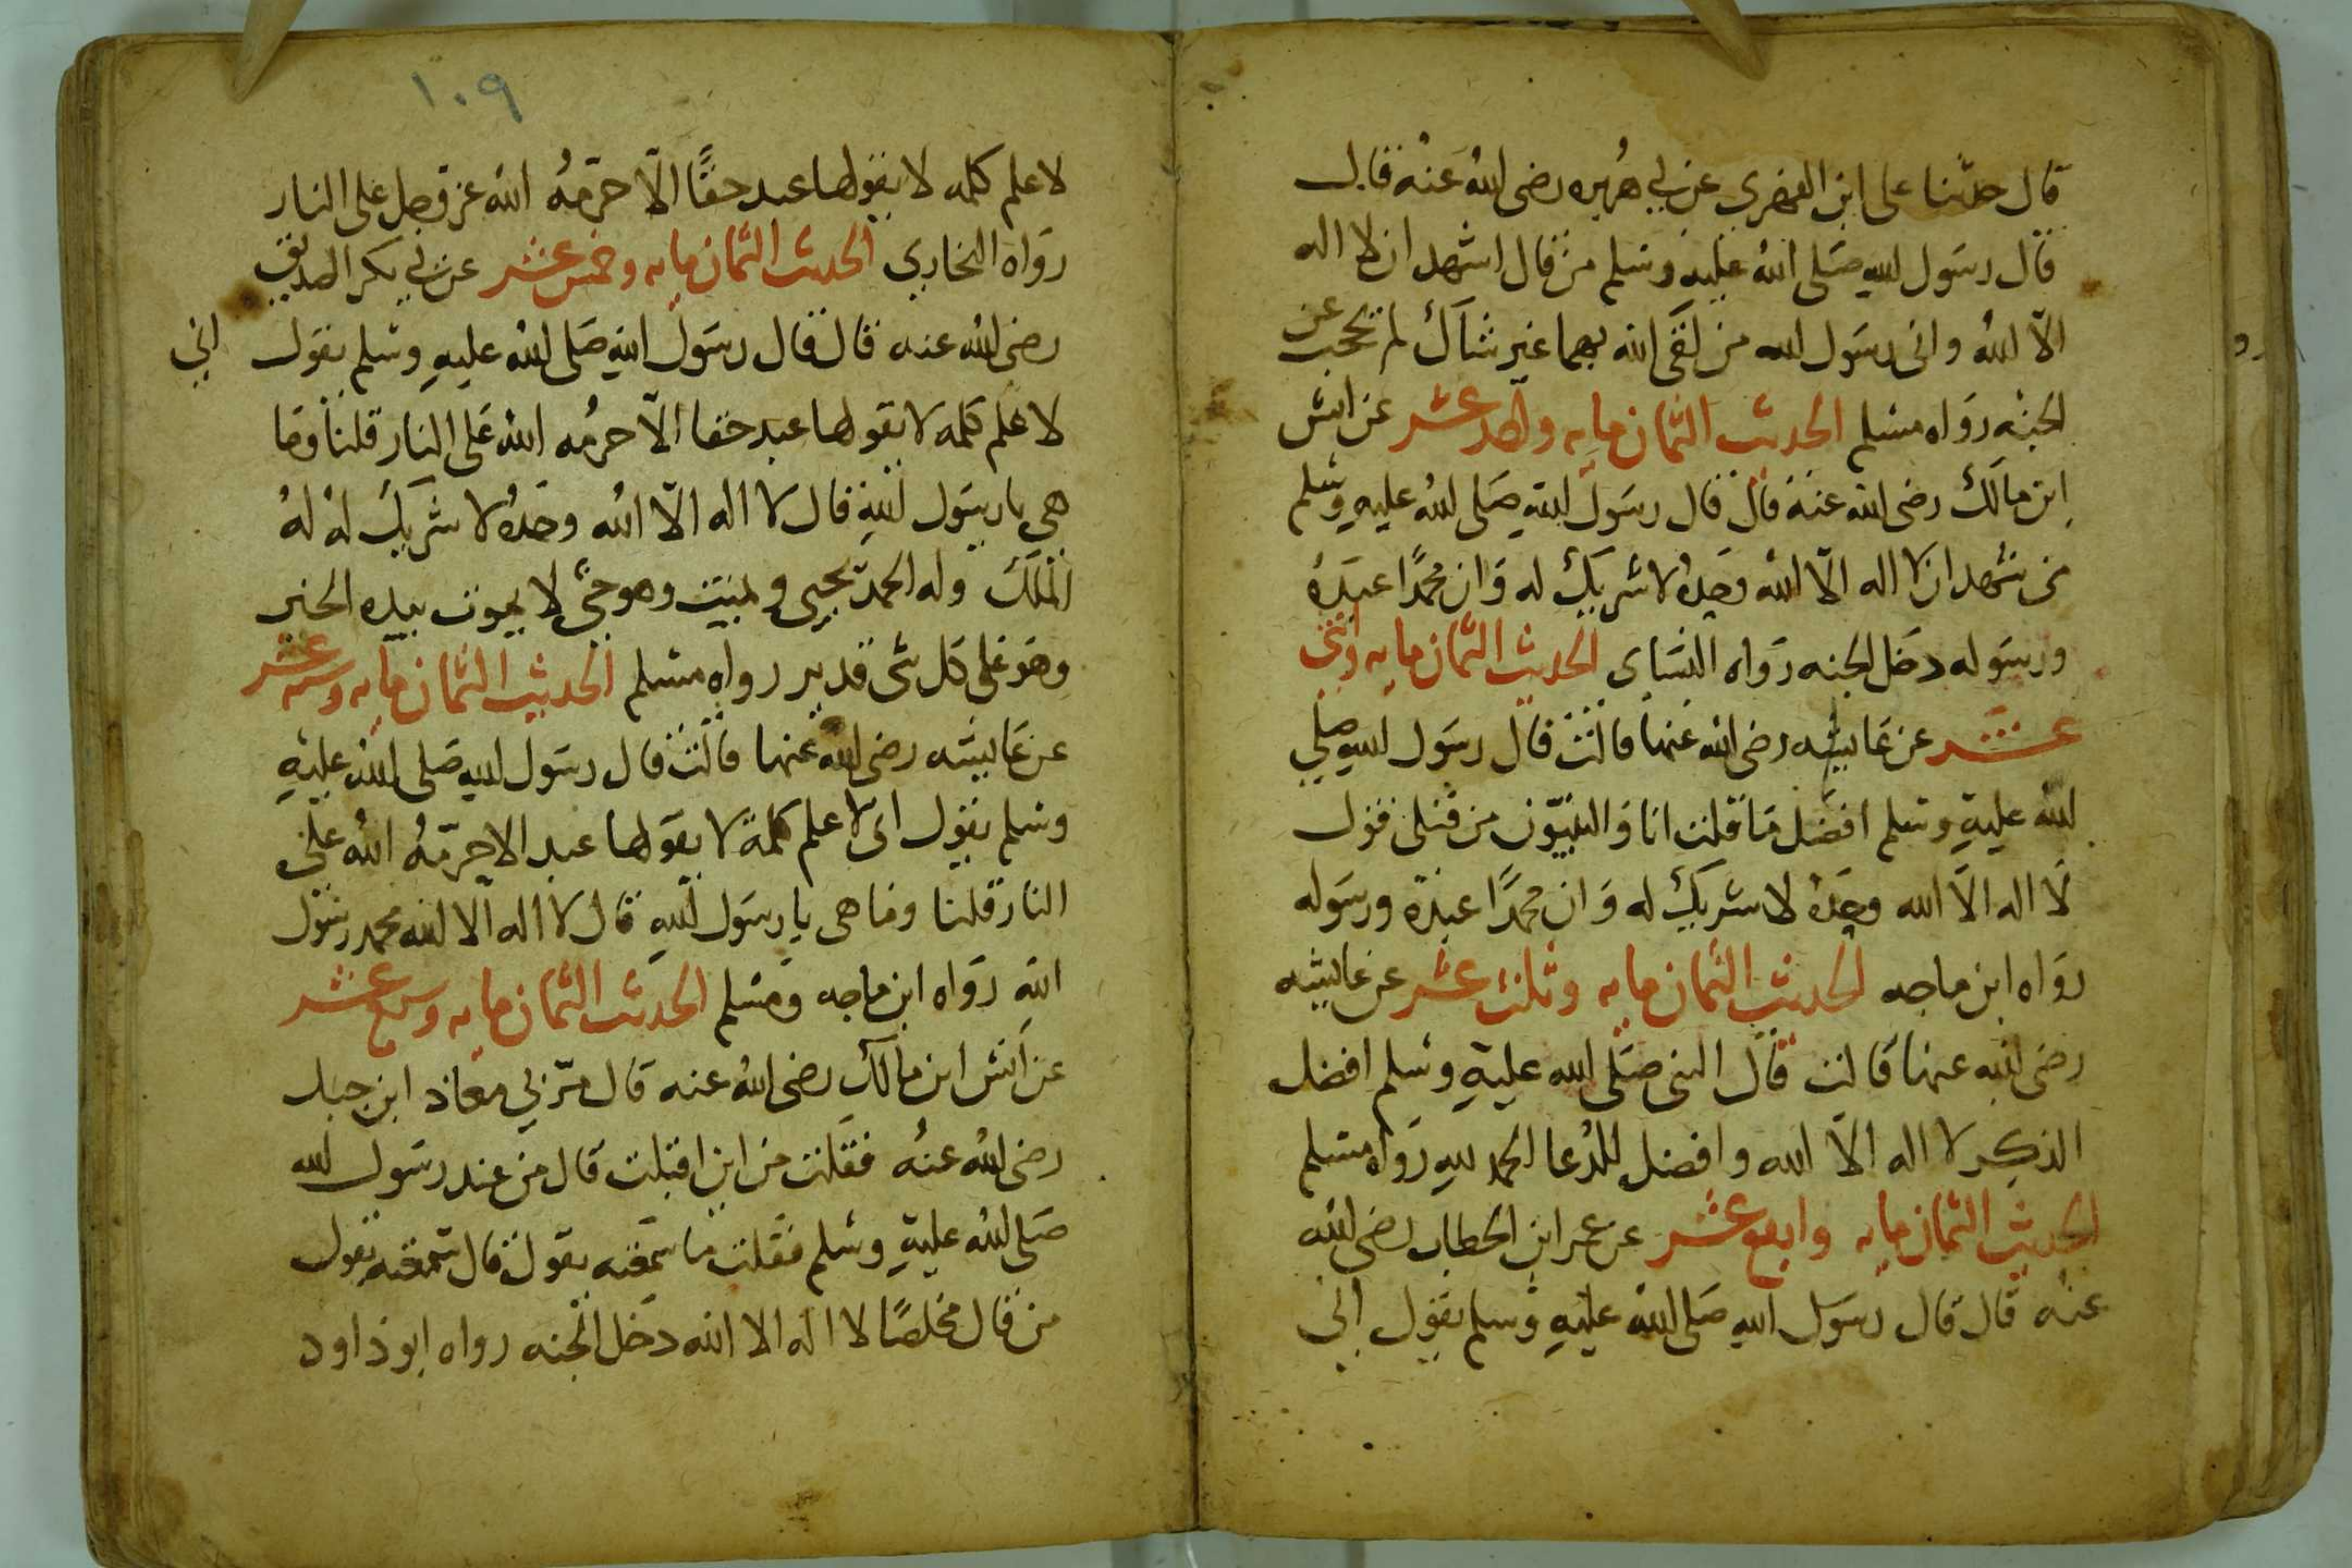 قال حدثنا على ابن الفهري عن ابي هريره رضى الله عنه قال
قال رسول الله صلى الله عليه وسلم من قال اشهد ان لا اله
الّا الله وانى رسول الله من لقى الله بهما غير شاك لم يحجب عن
الجنه رواه مسلم الحديث الثمان مايه واحد عشر عن انس
ابن مالك رضى الله عنه قال قال رسول الله صلى الله عليه وسلم
من شهد ان لا اله الّا الله وحده لا شريك له وان محمدًا عبده
ورسوله دخل الجنه رواه النساى الحديث الثمان مايه واثنى
عشر عن عايشه رضى الله عنها قالت قال رسول الله صلى
الله عليه وسلم افضل ما قلت انا والنبيّون من قبلى قول
لا اله الّا الله وحده لا شريك له وان محمدًا عبده ورسوله
رواه ابن ماجه الحديث الثمان مايه وثلث عشر عن عايشه
رضى الله عنها قالت قال النبى صلى الله عليه وسلم افضل
الذكر لا اله الّا الله وافضل للدعا الحمد لله رواه مسلم
الحديث الثمان مايه وابع عشر عن عمر ابن الخطاب رضى الله
عنه قال قال رسول الله صلى الله عليه وسلم يقول انى
١٠٩
لا علم كلمه لا يقولها عبد حقًّا الّا حرّمهُ الله عز وجل على النار
رواه البخاري الحديث الثمان مايه وخمس عشر عن ابي بكر الصديق
رضى الله عنه قال قال رسول الله صلى الله عليه وسلم يقول اني
لا علم كلمه لا يقولها عبد حقا الّا حرمُه الله على النار قلنا وما
هى يا رسول الله قال لا اله الّا الله وحدهُ لا شريك لهُ لهُ
الملك وله الحمد يحيى ويميت وهو حيّ لا يموت بيده الخير
وهو على كل شى قدير رواه مسلم الحديث الثمان مايه وسته عشر
عن عايشه رضى الله عنها قالت قال رسول الله صلى الله عليه
وسلم يقول انى لا علم كلمة لا يقولها عبد الا حرّمهُ اللهُ على
النار قلنا وما هى يا رسول الله قال لا اله الّا الله محمد رسول
الله رواه ابن ماجه ومسلم الحديث الثمان مايه وسبع عشر
عن انس ابن مالك رضى الله عنه قال مرّ بي معاذ ابن جبل
رضى الله عنهُ فقلت من اين اقبلت قال من عند رسول الله
صلى الله عليه وسلم فقلت ما سمعته يقول قال سمعته يقول
من قال مخلصًا لا اله الا الله دخل الجنه رواه ابو داود